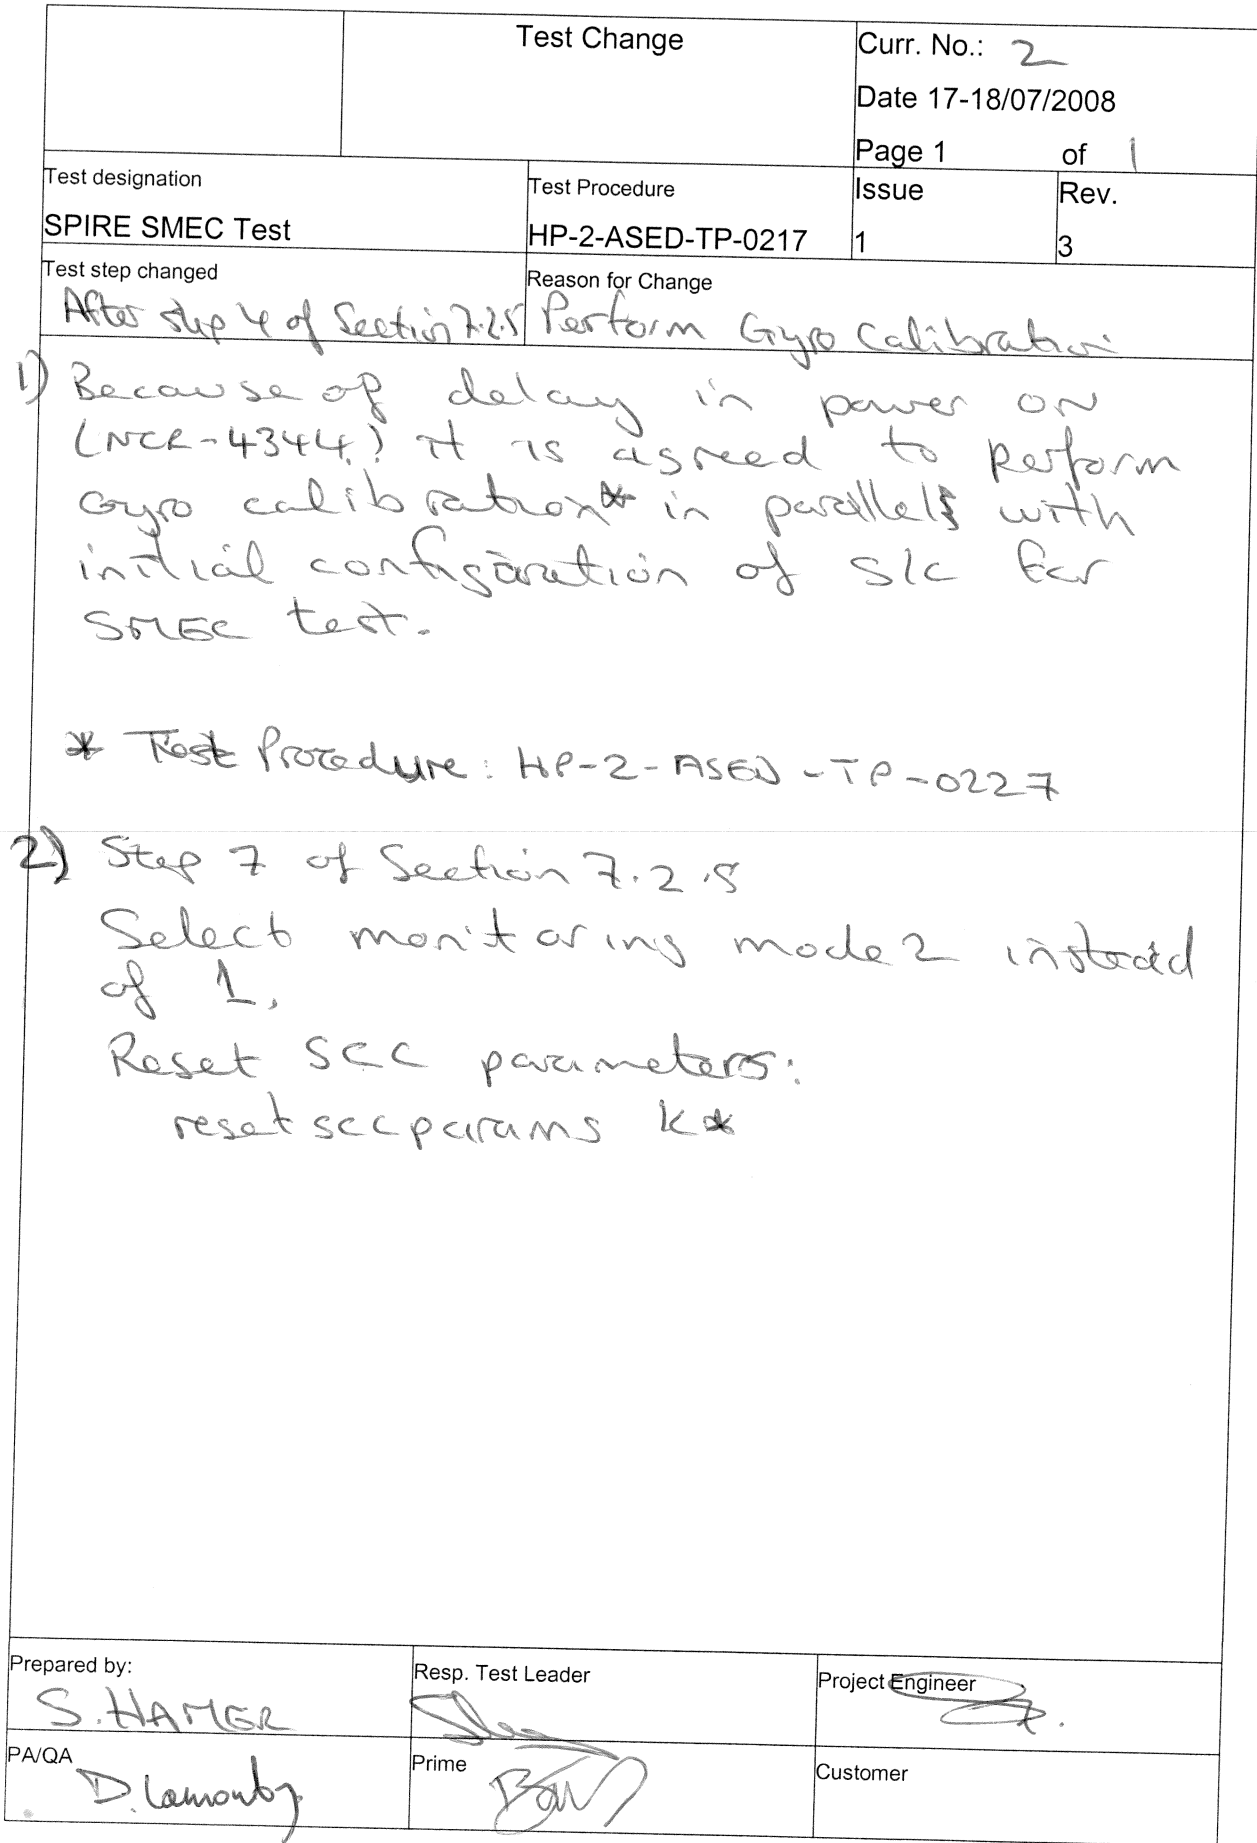 Test Change
Curr. No.: 2
Date 17-18/07/2008
Page 1 of 1
Test designation
SPIRE SMEC Test
Test Procedure
HP-2-ASED-TP-0217
Issue
1
Rev.
3
Test step changed
After step 4 of Section 7.2.5
Reason for Change
Perform Gyro Calibration
1) Because of delay in power on
(NCR-4344) it is agreed to perform
Gyro calibration* in parallel with
initial configuration of S/C for
SMEC test.
* Test Procedure: HP-2-ASED-TP-0227
2) Step 7 of Section 7.2.5
Select monitoring mode 2 instead
of 1.
Reset SCC parameters:
resetsccparams k*
Prepared by:
S. HAMER
Resp. Test Leader
Project Engineer
PA/QA
D. Lamonby
Prime
Customer